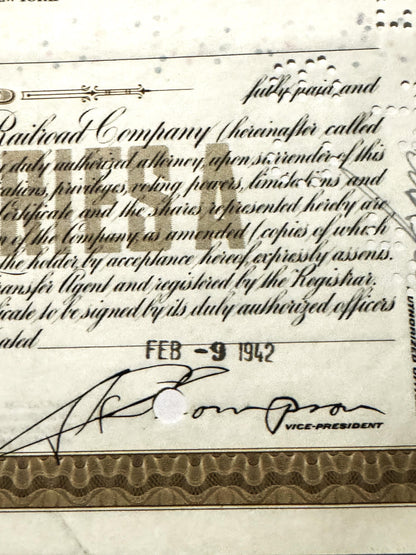 fully paid and
Railroad Company (hereinafter called
duly authorized attorney, upon surrender of this
privileges, voting powers, limitations and
Certificate and the shares represented hereby are
of the Company as amended (copies of which
the holder by acceptance hereof expressly assents.
Transfer Agent and registered by the Registrar.
to be signed by its duly authorized officers
SERIES A
FEB -9 1942
Thompson
VICE-PRESIDENT